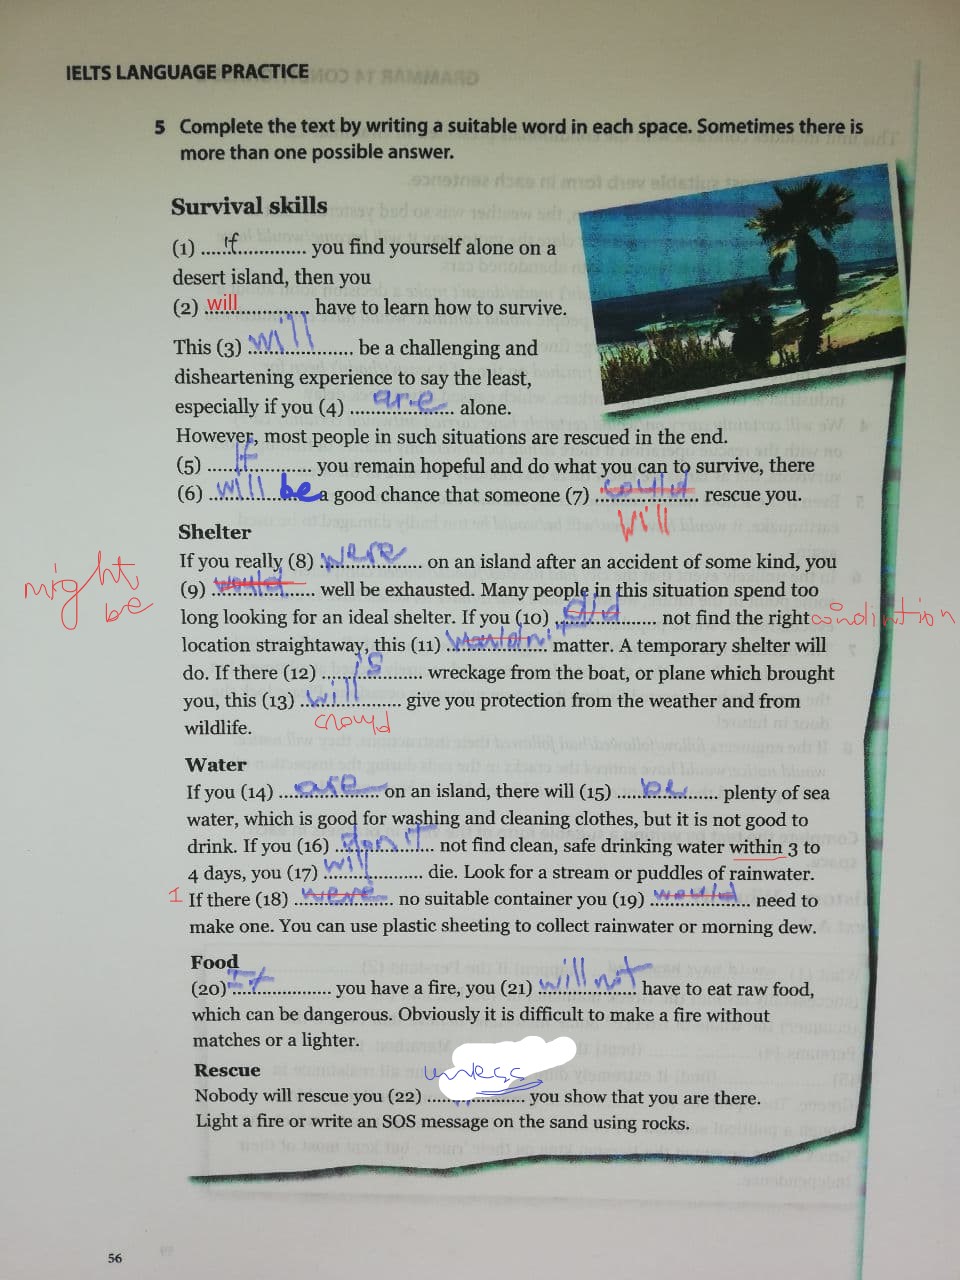 IELTS LANGUAGE PRACTICE
5 Complete the text by writing a suitable word in each space. Sometimes there is
more than one possible answer.
Survival skills
(1) .....If............. you find yourself alone on a
desert island, then you
(2) will.................. have to learn how to survive.
This (3) will.................. be a challenging and
disheartening experience to say the least,
especially if you (4) ....are.............. alone.
However, most people in such situations are rescued in the end.
(5) .....If............. you remain hopeful and do what you can to survive, there
(6) will be a good chance that someone (7) could.................. rescue you.
will
Shelter
If you really (8) were.................. on an island after an accident of some kind, you
might be
(9) would.................. well be exhausted. Many people in this situation spend too
long looking for an ideal shelter. If you (10) did.................. not find the right condintion
location straightaway, this (11) .................. matter. A temporary shelter will
do. If there (12) ......is............ wreckage from the boat, or plane which brought
you, this (13) will.................. give you protection from the weather and from
wildlife.
Water
If you (14) ...are............... on an island, there will (15) ....be.............. plenty of sea
water, which is good for washing and cleaning clothes, but it is not good to
drink. If you (16) don't.................. not find clean, safe drinking water within 3 to
4 days, you (17) will.................. die. Look for a stream or puddles of rainwater.
1 If there (18) were.................. no suitable container you (19) would.................. need to
make one. You can use plastic sheeting to collect rainwater or morning dew.
Food
(20) If.................. you have a fire, you (21) will not.................. have to eat raw food,
which can be dangerous. Obviously it is difficult to make a fire without
matches or a lighter.
Rescue
Nobody will rescue you (22) unless.................. you show that you are there.
Light a fire or write an SOS message on the sand using rocks.
56